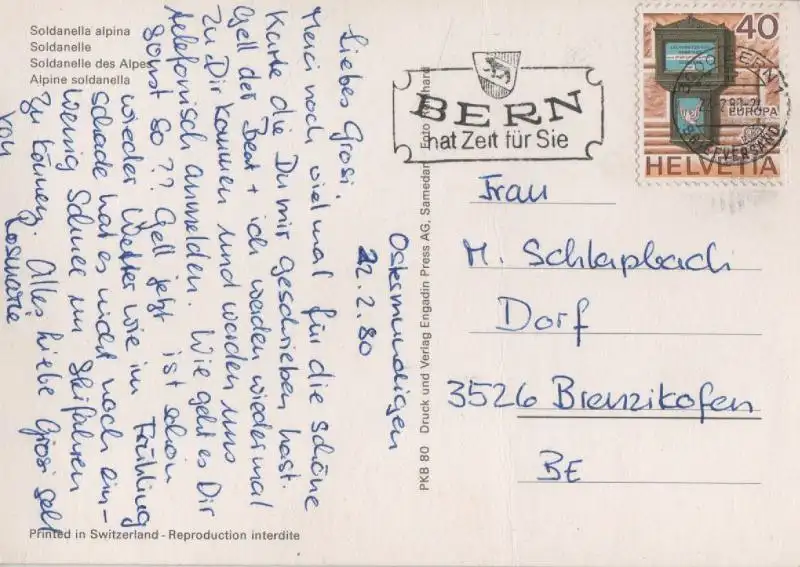 Soldanella alpina
Soldanelle
Soldanelle des Alpes
Alpine soldanella
Ostermundigen
22.2.80
Liebes Grosi,
Merci noch vielmal für die schöne
Karte die Du mir geschrieben hast.
Gell der Beat + ich werden wiedermal
zu Dir kommen und werden uns
telefonisch anmelden. Wie geht es Dir
sonst so?? Gell jetzt ist schon
wieder Wetter wie im Frühling
schade hat es nicht noch ein-
wenig Schnee um Skifahren
zu können. Alles Liebe Grosi
von Rosmarie
Printed in Switzerland - Reproduction interdite
PKB 80 Druck und Verlag Engadin Press AG, Samedan Foto
BERN
hat Zeit für Sie
40
EUROPA
HELVETIA
BERN
BRIEFVERSAND
Frau
M. Schlapbach
Dorf
3526 Brenzikofen
BE